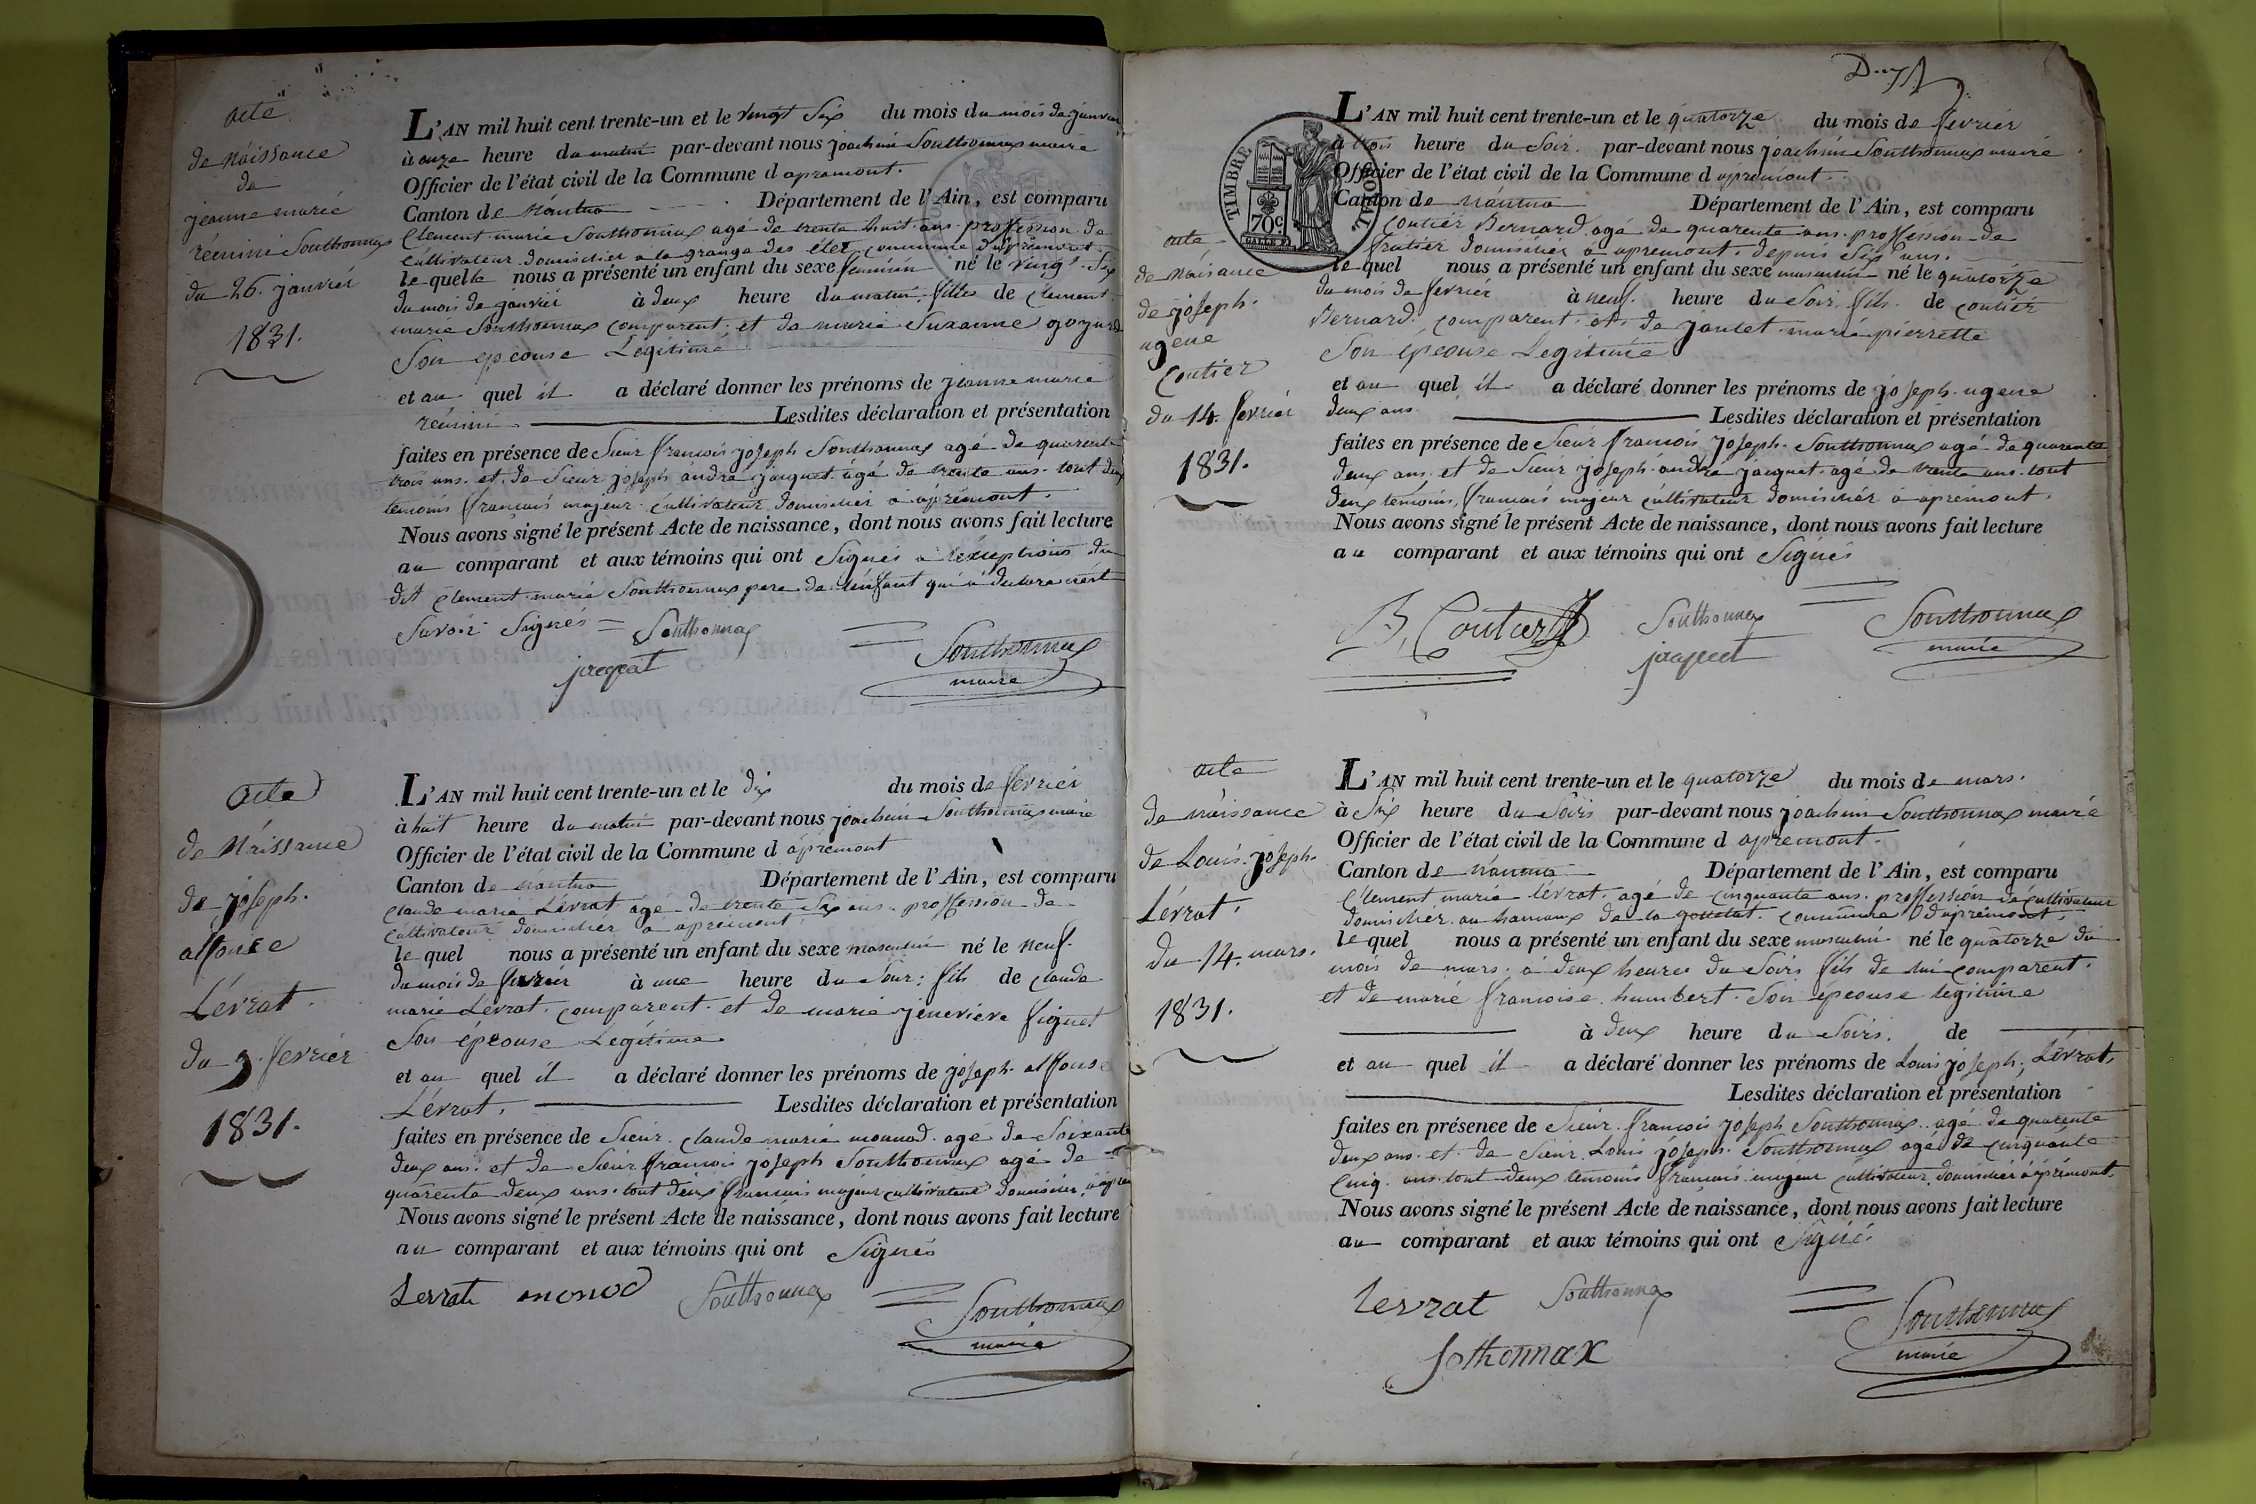 acte
de Náissance
de
jeanne marie
réenini Southonnax
du 26. janvié
1831.
L'AN mil huit cent trente-un et le vingt Six du mois du mois de janvier
à onze heure du matin par-devant nous joachim Southonnax maire
Officier de l'état civil de la Commune d apremont.
Canton de Nántua Département de l'Ain, est comparu
Clement marie Southonnax agé de trente huit ans. proffession de
cultivateur domicilier a la grange des commune d'apremont.
le quel nous a présenté un enfant du sexe feminin né le vingt Six
du mois de janvier à deux heure du matin. fille de Clement
marie Southonnax comparent. et de marie Suzanne goyard
Son épeouse Legitime
et au quel il a déclaré donner les prénoms de jeanne marie
réenini Lesdites déclaration et présentation
faites en présence de Sieur francois joseph Southonnax agé de quarente
trois ans. et de Sieur joseph andré jacquet. agé de trente ans. tout deux
temoins français majeur. cultivateur domicilier a apremont.
Nous avons signé le présent Acte de naissance, dont nous avons fait lecture
au comparant et aux témoins qui ont Signés a lexception du
dit Clement marie Southonnax pere de lenfant qui a
Savoir Signés = Southonnax
jacquet
Southonnax
maire
acte
de Náissance
de joseph.
alfonce
Lévrat.
du 9. fevrier
1831.
L'AN mil huit cent trente-un et le dix du mois de fevrier
à huit heure du matin par-devant nous joachim Southonnax maire
Officier de l'état civil de la Commune d apremont
Canton de nantua Département de l'Ain, est comparu
Claude marie Lévrat agé de trente Six ans. proffession de
cultivateur domicilier a apremont
le quel nous a présenté un enfant du sexe masculin né le neuf.
du mois de fevrier à une heure du Soir: fils de Claude
marie Lévrat. comparent. et de marie jeneviéve figuet
Son épeouse Legitime
et au quel il a déclaré donner les prénoms de joseph. alfonse
Lévrat. Lesdites déclaration et présentation
faites en présence de Sieur. Claude marie monnod. agé de Soixante
deux ans. et de Sieur francois joseph Southonnax agé de
quarente deux ans. tout deux francais majeur cultivateur domicilier
Nous avons signé le présent Acte de naissance, dont nous avons fait lecture
au comparant et aux témoins qui ont Signés
Levrat monod Southonnax
Southonnax
maire
TIMBRE ROYAL
70c
acte
de Naisance
de joseph.
ugene
Coutier
du 14. fevrier
1831.
L'AN mil huit cent trente-un et le quatorze du mois de fevrier
à trois heure du Soir. par-devant nous joachim Southonnax maire
Officier de l'état civil de la Commune d apremont.
Canton de nántua Département de l'Ain, est comparu
Coutier Bernard. agé de quarente ans. proffession de
frutier domicilier a apremont. depuis Six ans.
le quel nous a présenté un enfant du sexe masculin né le quatorze
du mois de fevrier à neuf. heure du Soir. fils. de coutier
Bernard. comparent. et. de jantet marie pierrette
Son épeouse Legitime
et au quel il a déclaré donner les prénoms de joseph ugene
deux ans. Lesdites déclaration et présentation
faites en présence de Sieur francois joseph. Southonnax agé de quarente
deux ans. et de Sieur joseph. andré jacquet. agé de trente ans. tout
deux temoins, francais majeur cultivateur domicilier a apremont.
Nous avons signé le présent Acte de naissance, dont nous avons fait lecture
au comparant et aux témoins qui ont Signés
B. Coutier
Southonnax
jacquet
Southonnax
maire
acte
de naissance
de Louis. joseph.
Lévrat.
du 14. mars.
1831.
L'AN mil huit cent trente-un et le quatorze du mois de mars.
à Six heure du Soirs par-devant nous joachim Southonnax maire
Officier de l'état civil de la Commune d apremont.
Canton de nántua Département de l'Ain, est comparu
Clement marie lévrat. agé de cinquante ans. proffession de cultivateur
domicilier au hamaux de la commune d'apremont.
le quel nous a présenté un enfant du sexe masculin né le quatorze du
mois de mars. a deux heures du Soirs fils de lui comparent.
et de marie francoise. humbert. Son épeouse legitime
à deux heure du Soirs. de
et au quel il a déclaré donner les prénoms de Louis joseph; Lévrat.
Lesdites déclaration et présentation
faites en présence de Sieur. francois joseph Southonnax. agé de quarente
deux ans. et. de Sieur. Louis joseph. Southonnax agé de cinquante
cinq. ans. tout deux temoins francais majeur cultivateur. domicilier a apremont.
Nous avons signé le présent Acte de naissance, dont nous avons fait lecture
au comparant et aux témoins qui ont Signé.
levrat Southonnax
Sothonnax
Southonnax
maire